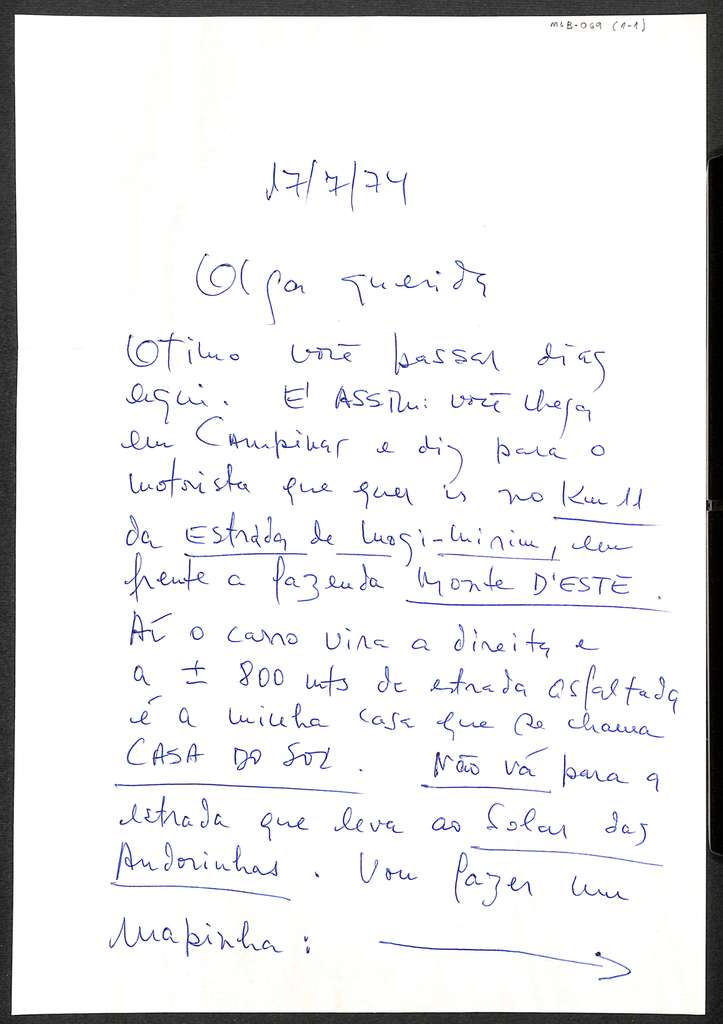 MLB-069 (1-1)
17/7/74
Olga querida
Otimo você passar dias
aqui. E' ASSIM: você chega
em Campinas e diz para o
motorista que quer ir no Km 11
da Estrada de Mogi-Mirim, em
frente a fazenda Monte D'ESTE.
Aí o carro vira a direita e
a ± 800 mts de estrada asfaltada
é a minha casa que se chama
CASA DO SOL. Não vá para a
estrada que leva ao Solar das
Andorinhas. Vou fazer um
mapinha: →